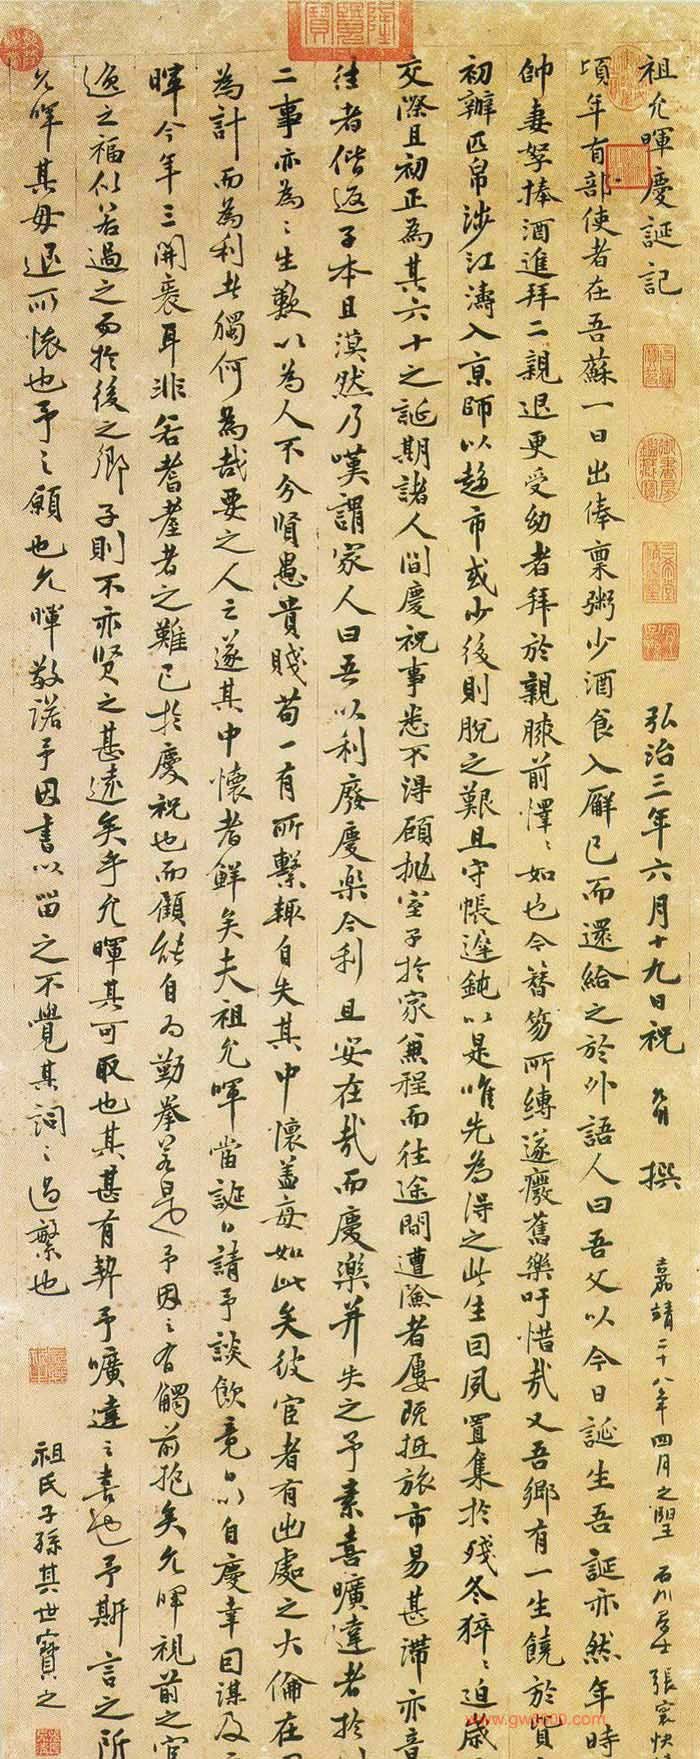 祖允暉慶誕記
弘治三年六月十九日祝 撰
嘉靖二十八年四月之望 石川 張寰
頃年有部使者在吾蘇一日出俸稟粥少酒食入廨已而還給之於外語人曰吾父以今日誕生吾誕亦然年時
帥妻孥捧酒進拜二親退更受幼者拜於親膝前懌懌如也今簪笏所縛遂廢舊樂吁惜哉又吾鄉有一生饒於貲
初辦匹帛涉江濤入京師以趨市或少後則脫之艱且守帳遲鈍以是唯先為得之此生因夙置集於殘冬猝猝迫歲
交際且初正為其六十之誕期諸人間慶祝事悉不得顧拋室子於家兼程而往途間遭淪者屢既抵旅市易甚滯亦音
往者偕返子本且漠然乃嘆謂家人曰吾以利廢慶樂今利且安在哉而慶樂并失之予素喜曠達者於
二事亦為之生歎以為人不分賢愚貴賤苟一有所繫輒自失其中懷蓋每如此矣彼宦者有出處之大倫在
為計而為利者獨何為哉要之人之遂其中懷者鮮矣夫祖允暉當誕日請予談飲竟日以自慶幸因謀及
暉今年三開袠耳非若耆耋者之難已於慶祝也而顧能自為勤拳若是予因之有觸前抱矣允暉視前之宦
逸之福似若過之而於後之鄉子則不亦賢之甚遠矣乎允暉其可取也其甚有契予曠達之喜也予斯言之所
允暉其毋退所懷也予之願也允暉敬諾予因書以留之不覺其詞之過繁也
祖氏子孫其世寶之